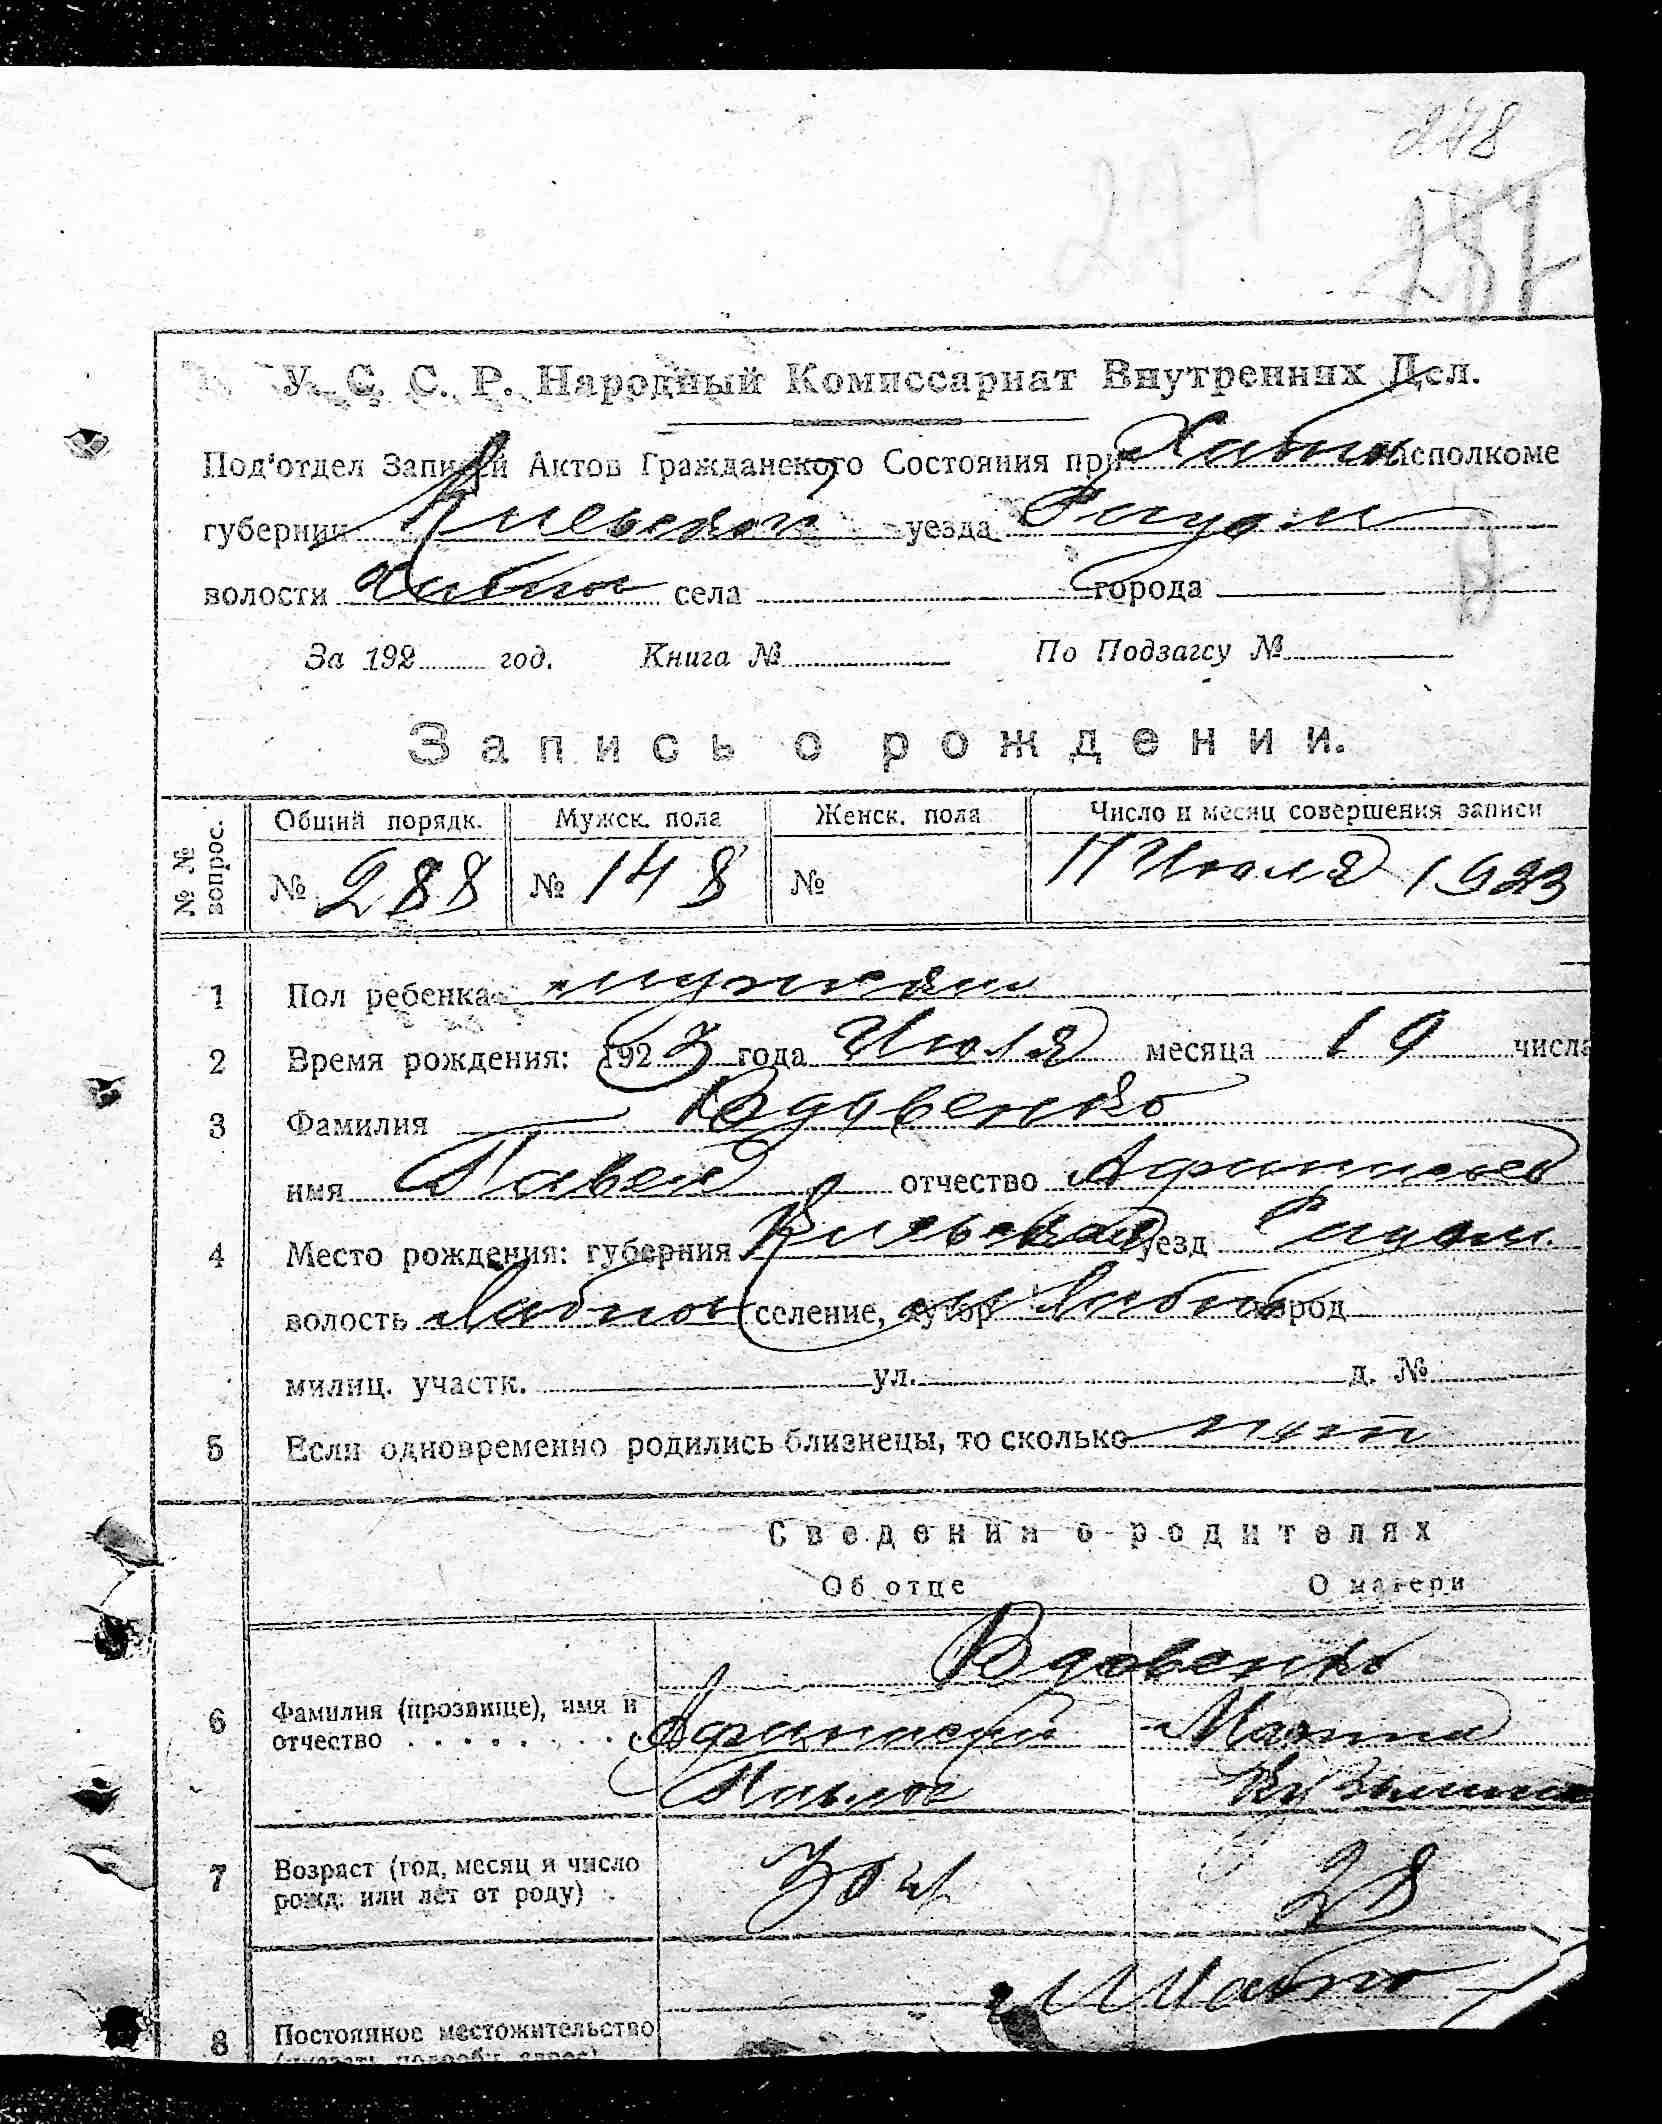 248
274
257
У. С. С. Р. Народный Комиссариат Внутренних Дел.
Под'отдел Записей Актов Гражданского Состояния при Хабн исполкоме
губернии Киевской уезда Радом
волости Хабнос села города
За 192 год. Книга № По Подзагсу №
Запись о рождении.
№ № вопрос. Общий порядк. Мужск. пола Женск. пола Число и месяц совершения записи
№ 288 № 148 № 11 Июля 1923
1 Пол ребенка мужской
2 Время рождения: 1923 года Июля месяца 19 числа
3 Фамилия Вдовенко
имя Павел отчество Афанасьев
4 Место рождения: губерния Киевская уезд Радом.
волость Хабное селение, хутор м Хабно город
милиц. участк. ул. д. №
5 Если одновременно родились близнецы, то сколько нет
Сведения о родителях
Об отце О матери
Вдовенко
6 Фамилия (прозвище), имя и
отчество Афанасий Марина
Павлов Кузьмина
7 Возраст (год, месяц и число
рожд. или лет от роду) 30 л 28
м Хабно
8 Постоянное местожительство
(указать подробн. адрес)